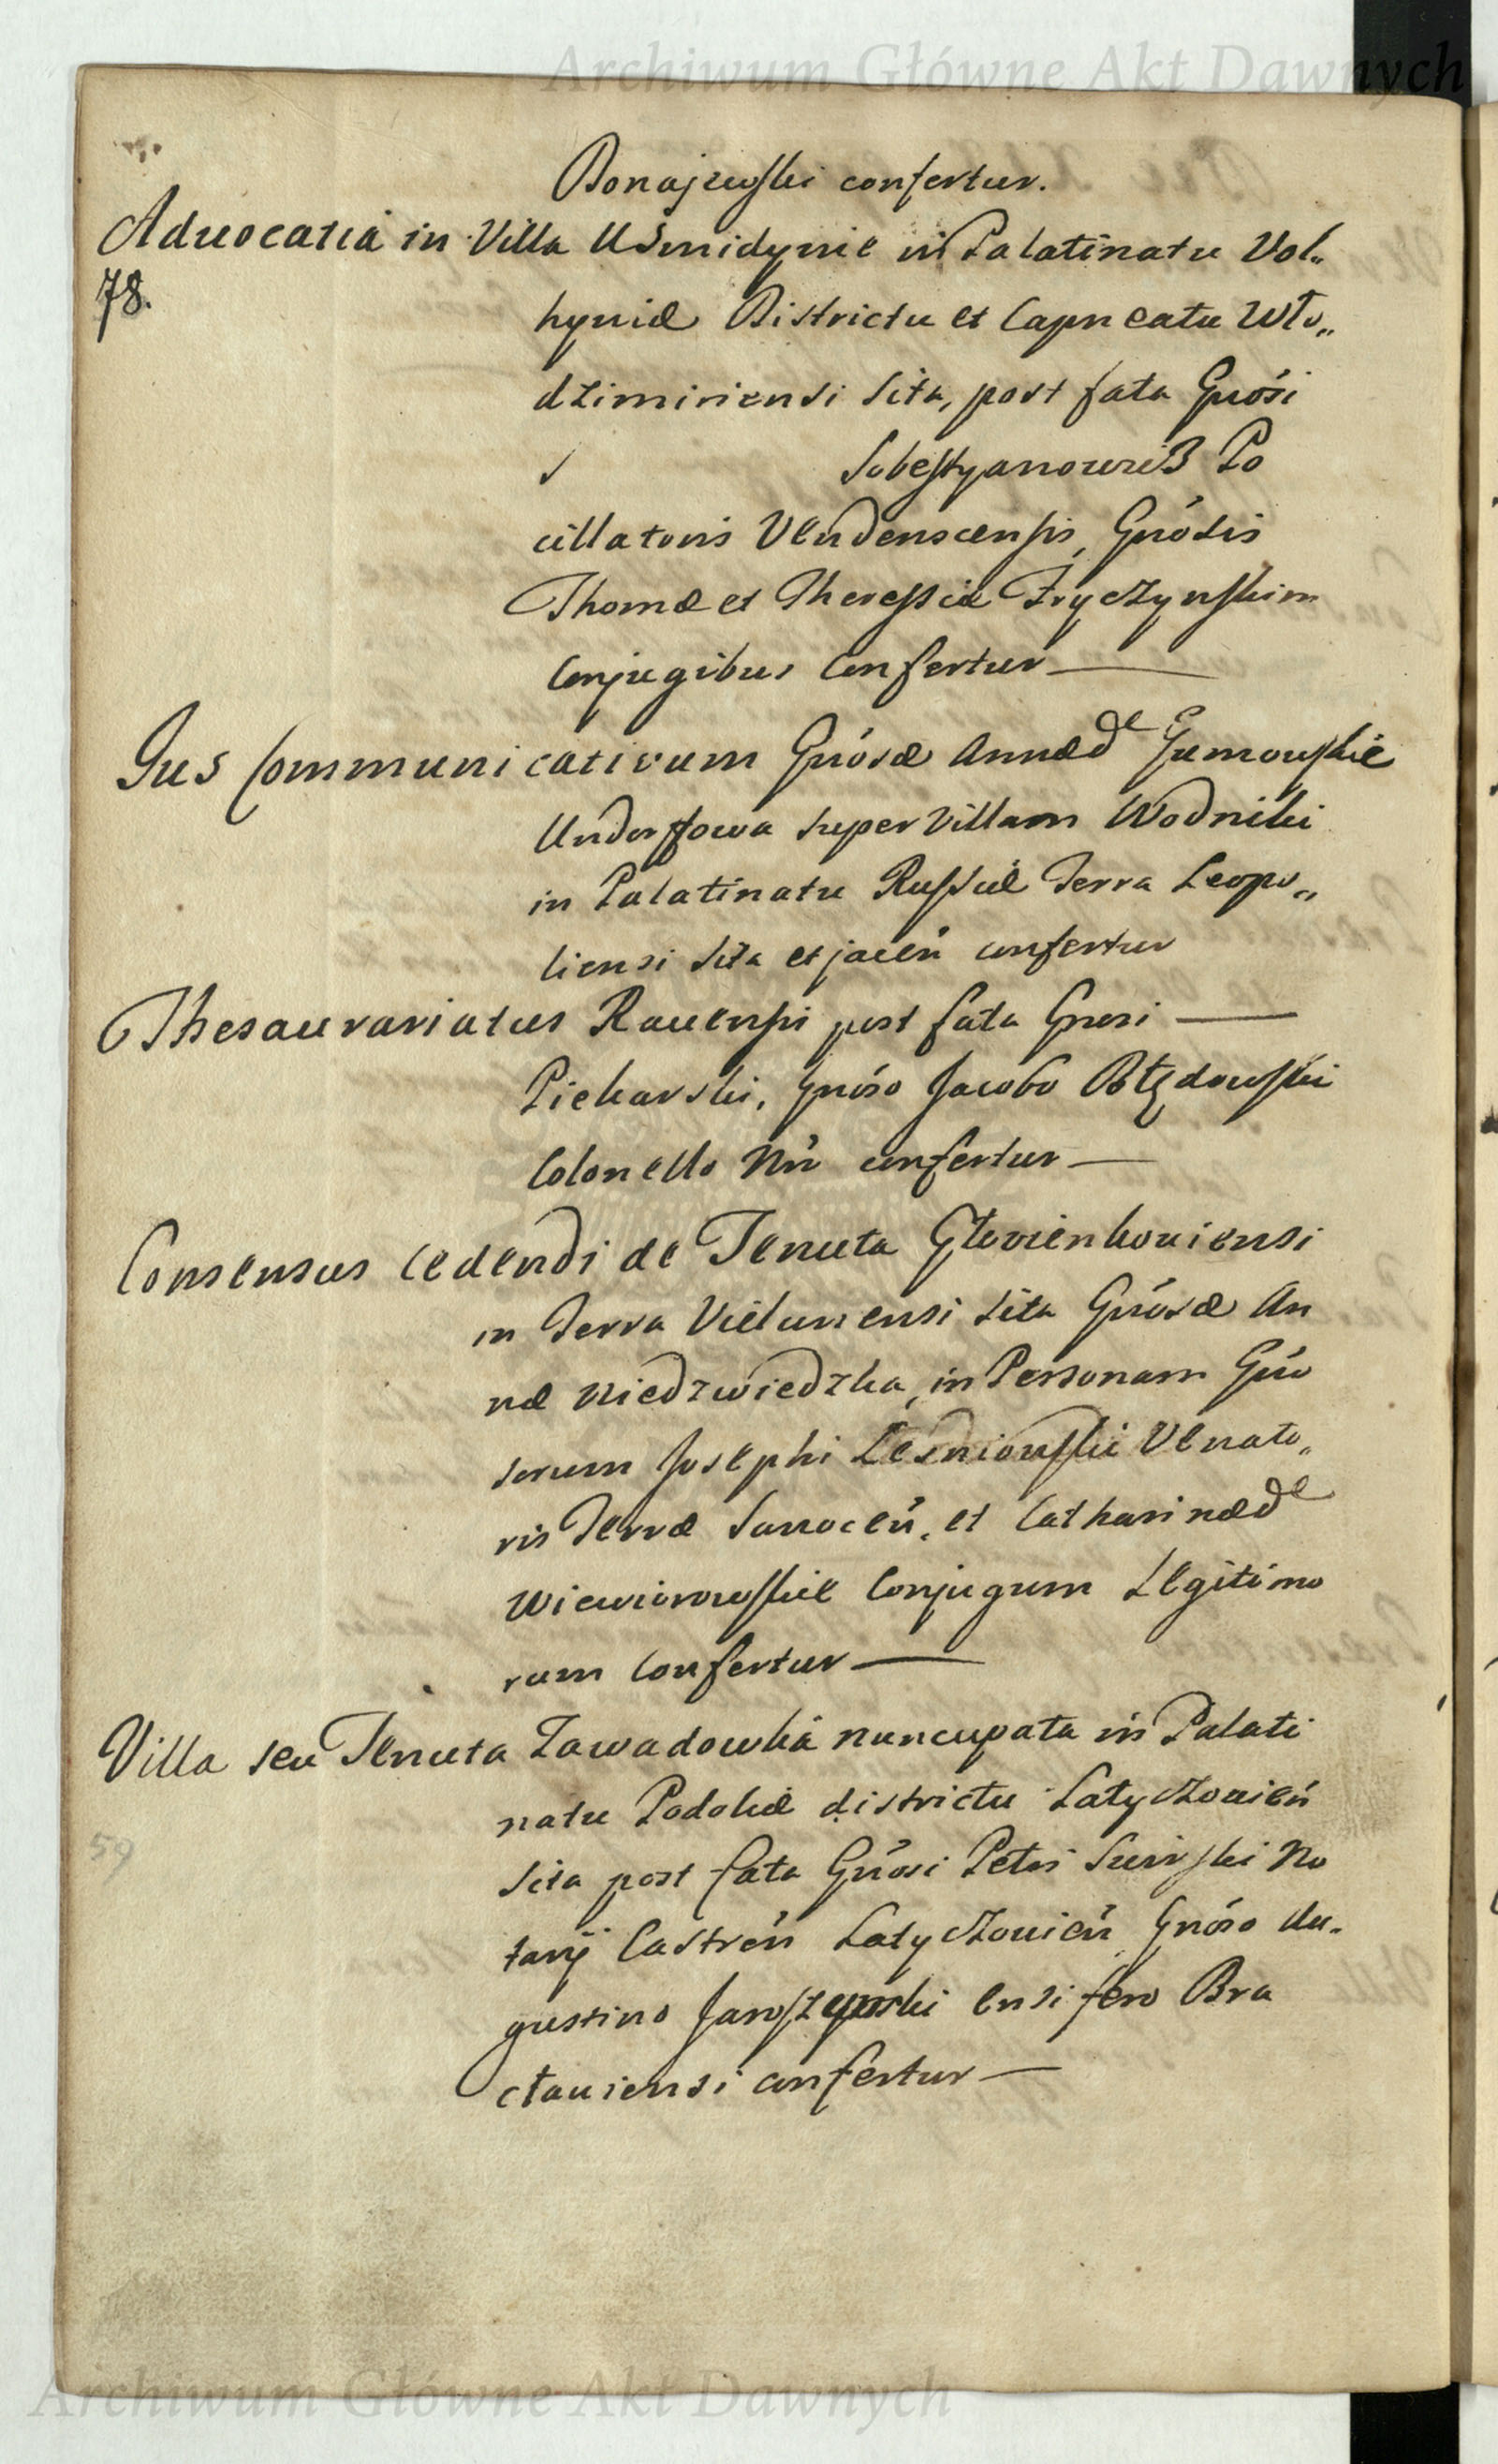 Archiwum Główne Akt Dawnych
Bonajewski confertur.
Advocatia in Villa Uśmidynie in Palatinatu Vol„
78.
hyniæ Districtu et Capneatu Wło„
dzimiriensi Sita, post fata Gnósi
Sebestyanowicz Po
cillatoris Vendenscensis, Gnósis
Thomæ et Theressiæ Tryczynskim
Conjugibus Confertur
Jus Communicativum Gnósæ Annæ de Gumowskie
Undorffowa super Villam Wodniki
in Palatinatu Russiæ Terra Leopo„
liensi Sita et jaceń confertur
Thesaurariatus Ravensis post fata Gnosi
Piekarski, Gnóso Jacobo Błędowski
Colonello Nró confertur
Consensus cedendi de Tenuta Glovienkoviensi
in Terra Vielunensi Sita Gnósæ An
næ Niedzwiedzka, in Personam Gnó
sorum Josephi Lesniowski Venato„
ris Terræ Sanoceń, et Catharinæ de
Wiewiorowskie Conjugum Legitimo
rum Confertur
Villa seu Tenuta Zawadowka nuncupata in Palati
natu Podoliæ districtu Latyczovień
59
Sita post fata Gnósi Petri Suirski No
tarij Castreń Latyczovień Gnóso Au„
gustino Jaroszynski Ensifero Bra
cłaviensi confertur
Archiwum Główne Akt Dawnych